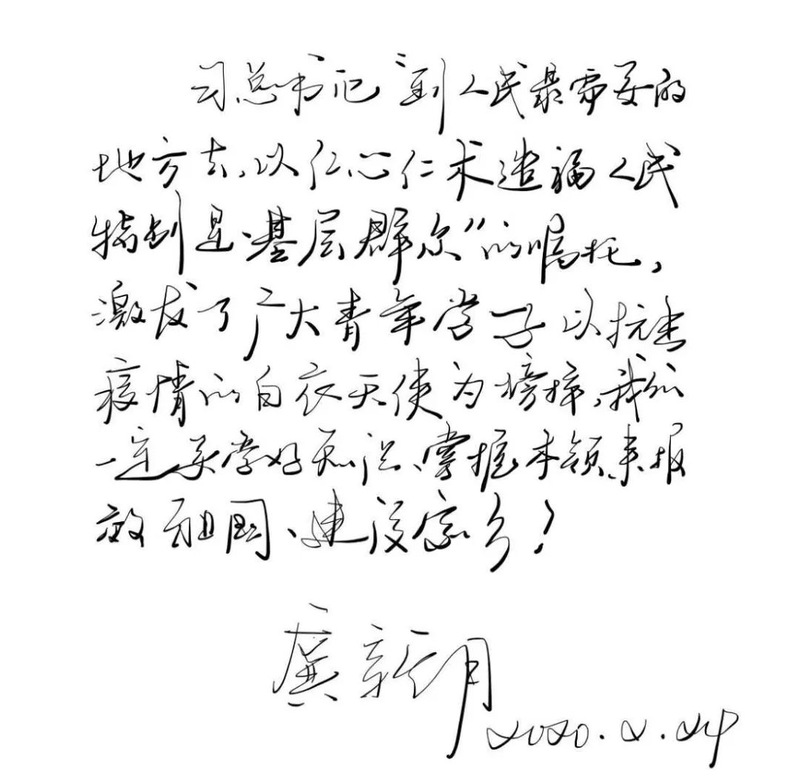 习总书记“到人民最需要的
地方去，以仁心仁术造福人民
特别是基层群众”的嘱托，
激发了广大青年学子以抗击
疫情的白衣天使为榜样，我们
一定要学好知识、掌握本领来报
效祖国、建设家乡！
新月
2020.2.24